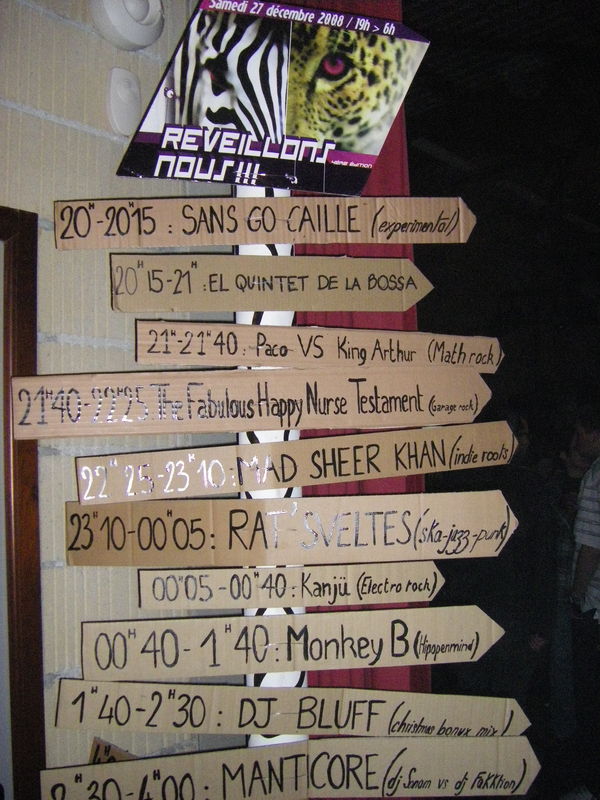 Samedi 27 décembre 2008 / 19h > 6h
REVEILLONS
NOUS!!! 4ÈME ÉDITION
20H-20H15 : SANS GO CAILLE (experimental)
20H15-21H : EL QUINTET DE LA BOSSA
21H-21H40 : Paco VS King Arthur (Math rock)
21H40-22H25 The Fabulous Happy Nurse Testament (Garage rock)
22H25-23H10 : MAD SHEER KHAN (indie roots)
23H10-00H05 : RAT'SVELTES (ska-jazz-punk)
00H05-00H40 : Kanjü (Electro rock)
00H40-1H40 : Monkey B (Hippopermind)
1H40-2H30 : DJ BLUFF (christmas bonux mix)
2H30-4H00 : MANTICORE (dj Sonam vs dj FaKKtion)